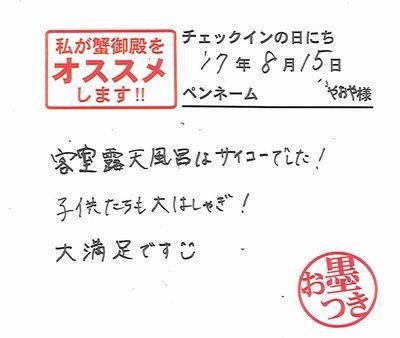 私が蟹御殿を
オススメ
します!!
チェックインの日にち
'17年8月15日
ペンネーム やおや様
客室露天風呂はサイコーでした!
子供たちも大はしゃぎ!
大満足です
お墨つき